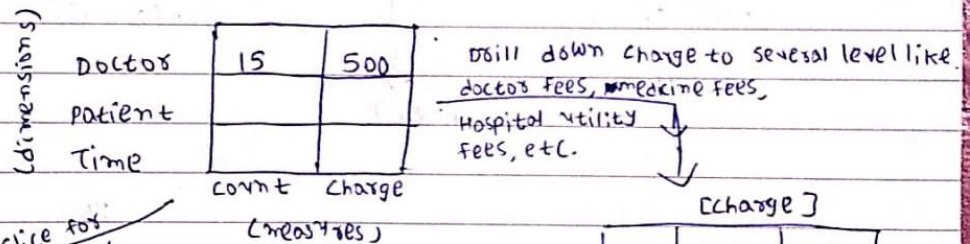 (dimensions)
Doctor 15 500
Patient
Time
count charge
(measures)
Drill down charge to several level like
doctor fees, medicine fees,
Hospital utility
fees, etc.
[charge]
slice for